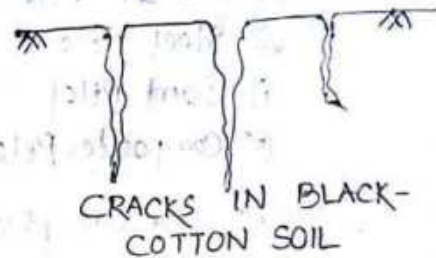 CRACKS IN BLACK-
COTTON SOIL